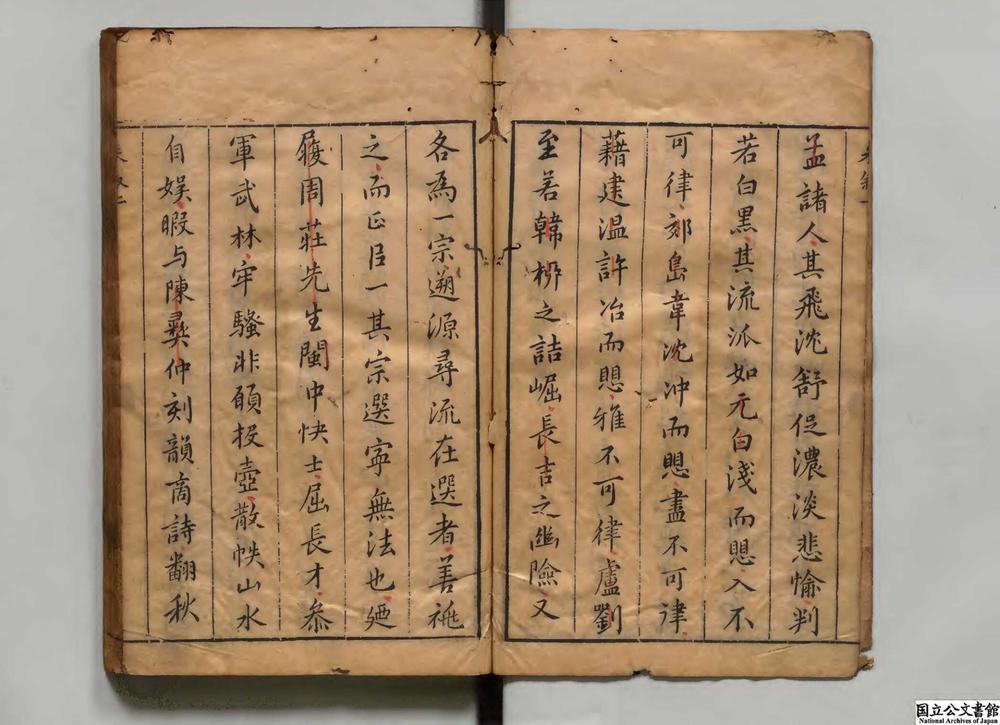 孟諸人其飛沈舒促濃淡悲愉判
若白黑其流派如元白淺而思入不
可律郊島韋沈冲而思盡不可律
藉建溫許冶而思雅不可律盧劉
至若韓柳之詰崛長吉之幽險又
各為一宗遡源尋流在選者善祧
之而正臣一其宗選寧無法也廼
履周莊先生閩中快士屈長才叅
軍武林牢騷非頋投壺散帙山水
自娛暇与陳彞仲刻韻商詩翻秋
国立公文書館
National Archives of Japan